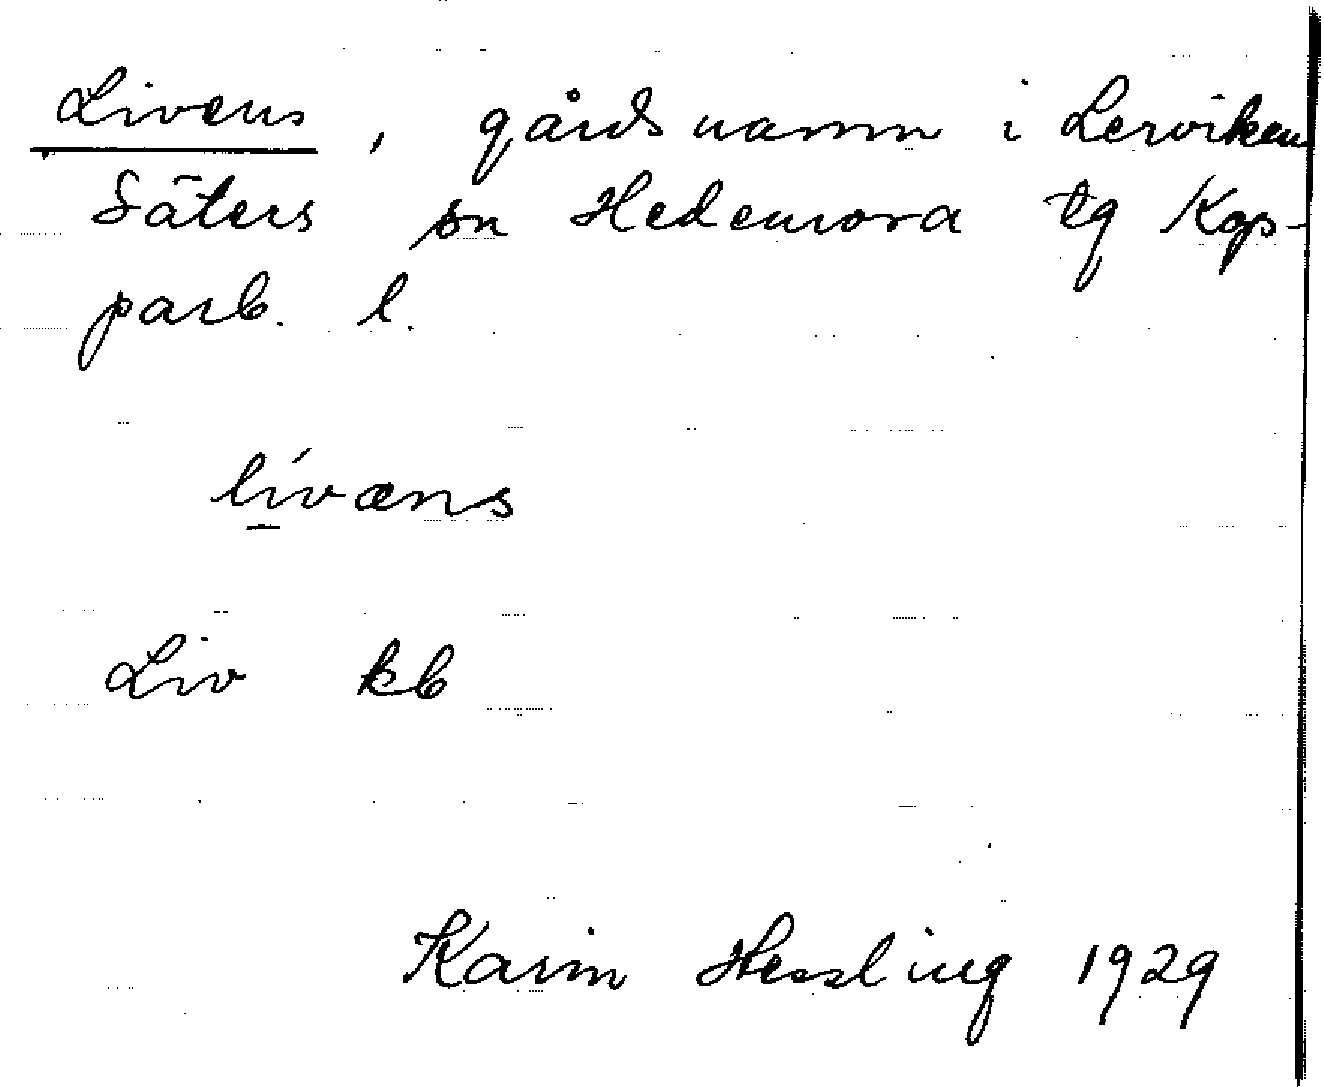 Livens, gårdsnamn i Lerviken
Säters sn Hedemora tg Kop-
parb. l.
lívæns
Liv kb
Karin Hessling 1929